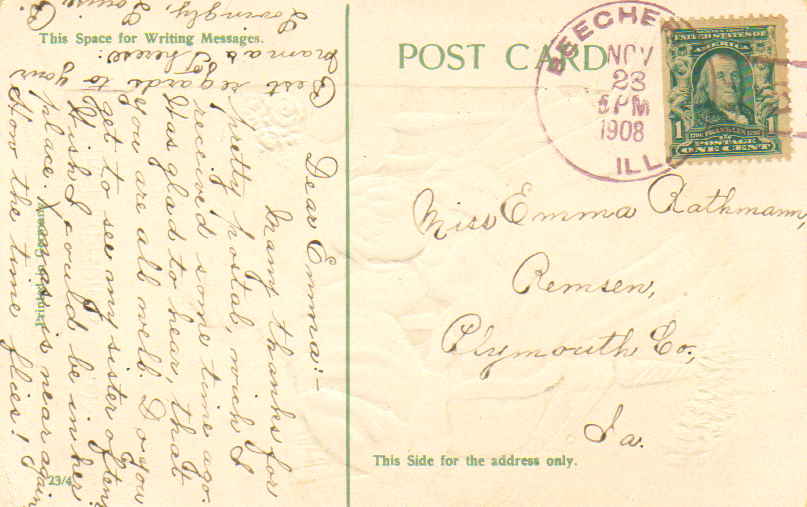 This Space for Writing Messages.
POST CARD
BEECHER
NOV
23
5 PM
1908
ILL.
UNITED STATES OF
AMERICA
1 FRANKLIN 1
POSTAGE
ONE CENT
Dear Emma:-
Many thanks for
pretty postal, wich I
received some time ago.
Was glad to hear, that
you are all well. Do you
get to see my sister often
Wish I could be in her
place. Xmas is near again
How the time flies!
Best regards to your
mama & Therese.
Lovingly, Louise
Miss Emma Rathmann,
Remsen,
Plymouth Co.,
Ia.
This Side for the address only.
Printed in Germany
23/4